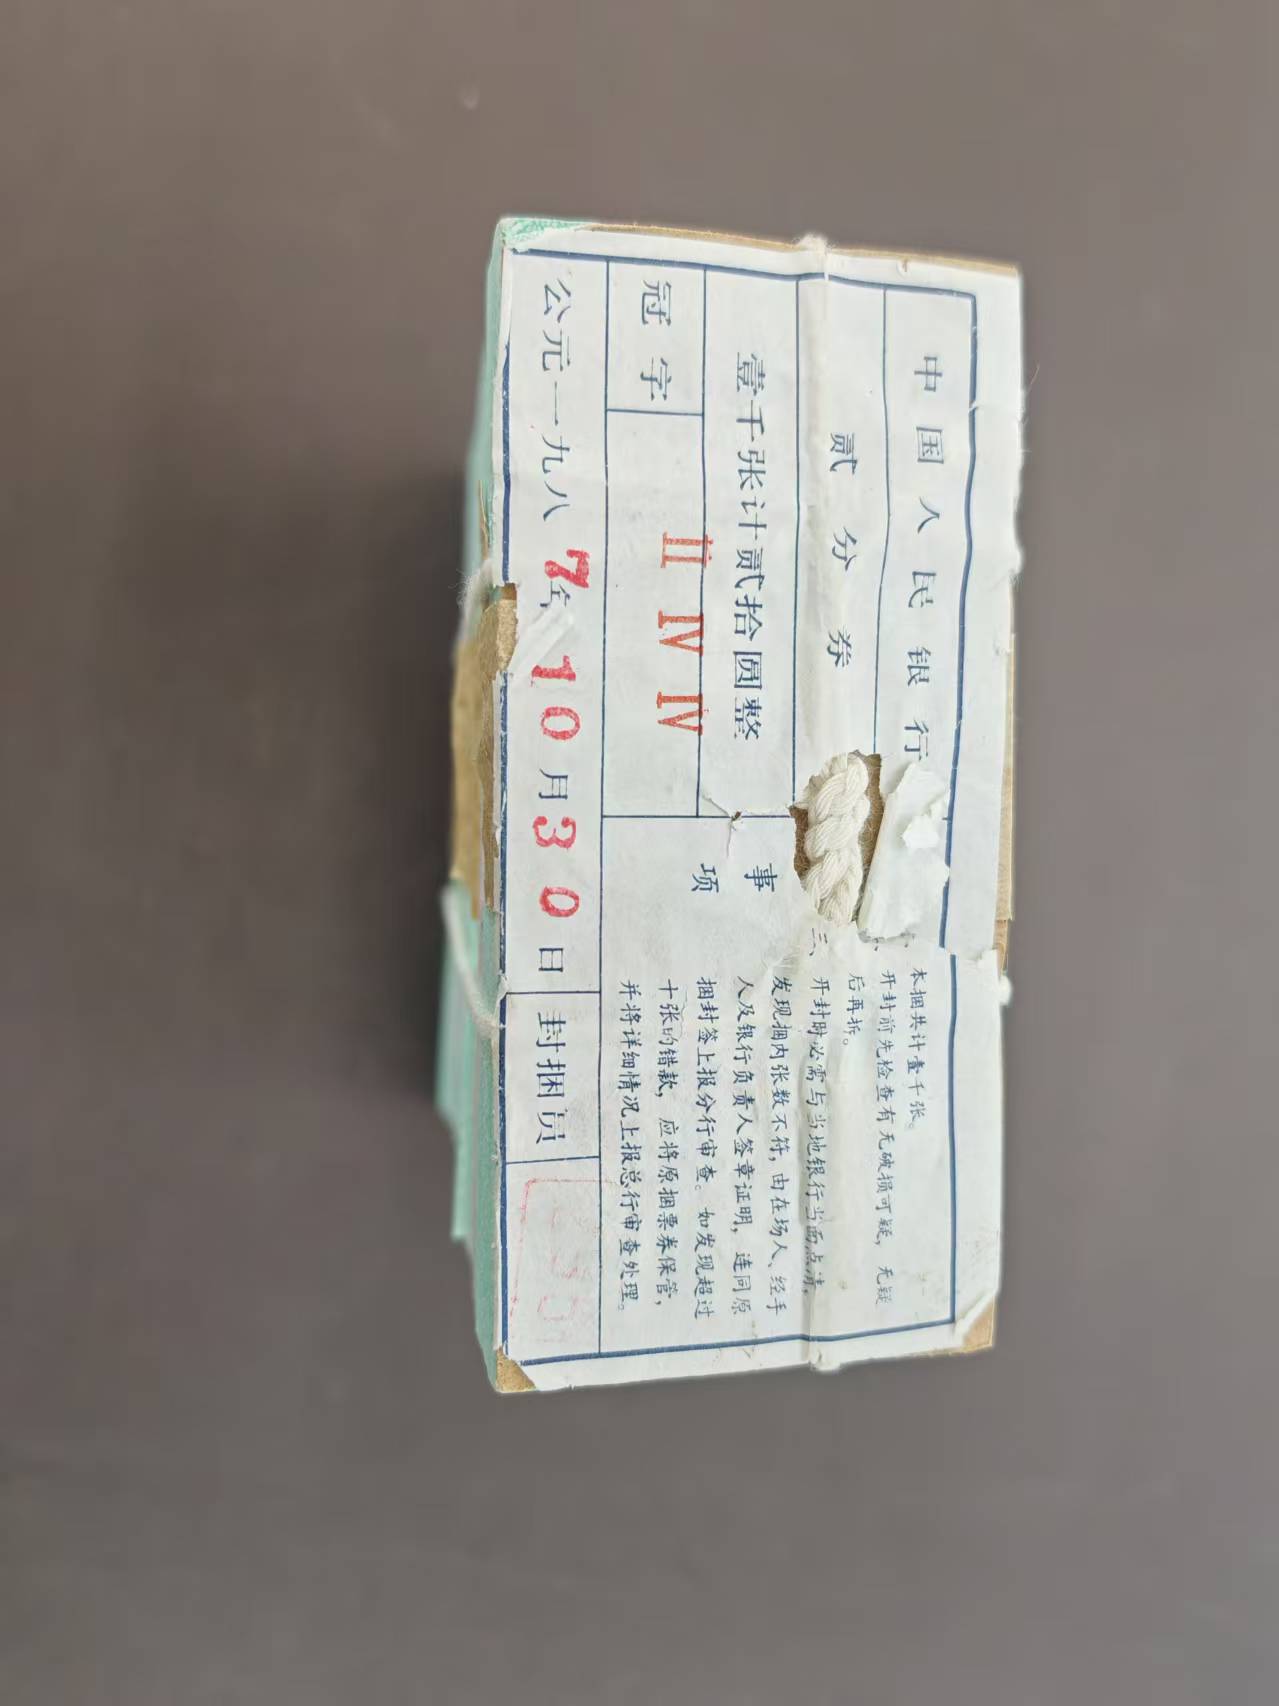 中国人民银行
贰分券
壹千张计贰拾圆整
冠字 II IV IV
公元一九八7年10月30日 封捆员
事项
本捆共计壹千张。
开封前先检查有无破损可疑，无疑
后再拆。
三、开封时必需与当地银行当面点清，
发现捆内张数不符，由在场人、经手
人及银行负责人签章证明，连同原
捆封签上报分行审查。如发现超过
十张的错款，应将原捆票券保管，
并将详细情况上报总行审查处理。